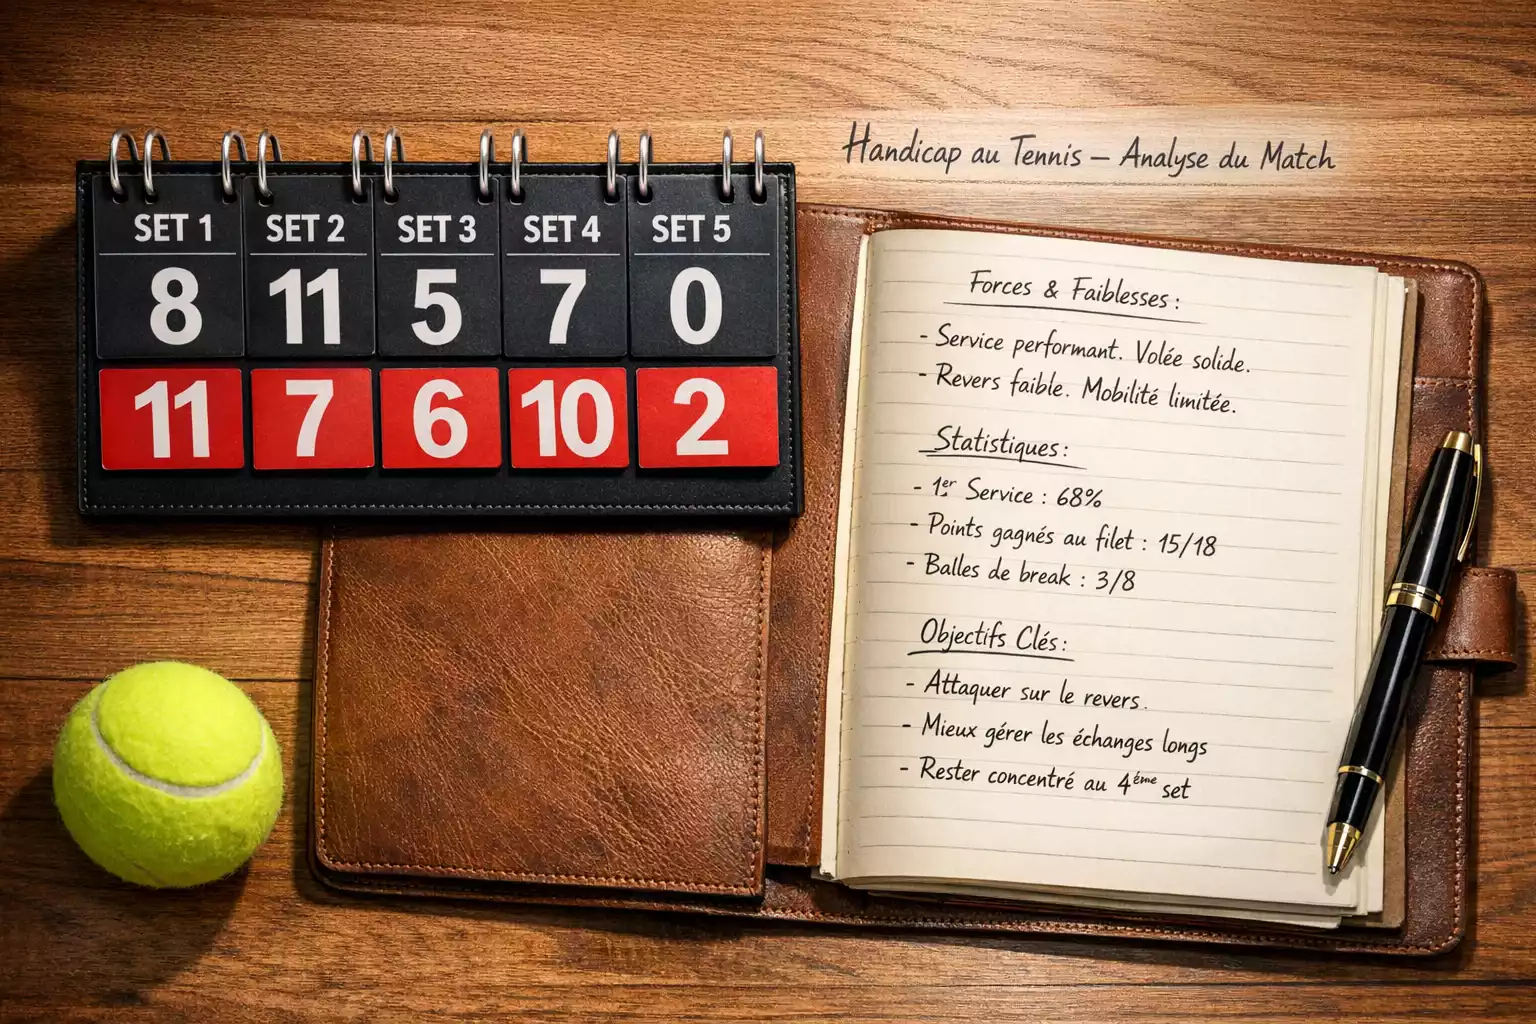 SET 1 SET 2 SET 3 SET 4 SET 5
8 11 5 7 0
11 7 6 10 2
Handicap au Tennis – Analyse du Match
Forces & Faiblesses :
- Service performant. Volée solide.
- Revers faible. Mobilité limitée.
Statistiques :
- 1er Service : 68%
- Points gagnés au filet : 15/18
- Balles de break : 3/8
Objectifs Clés :
- Attaquer sur le revers.
- Mieux gérer les échanges longs
- Rester concentré au 4ème set